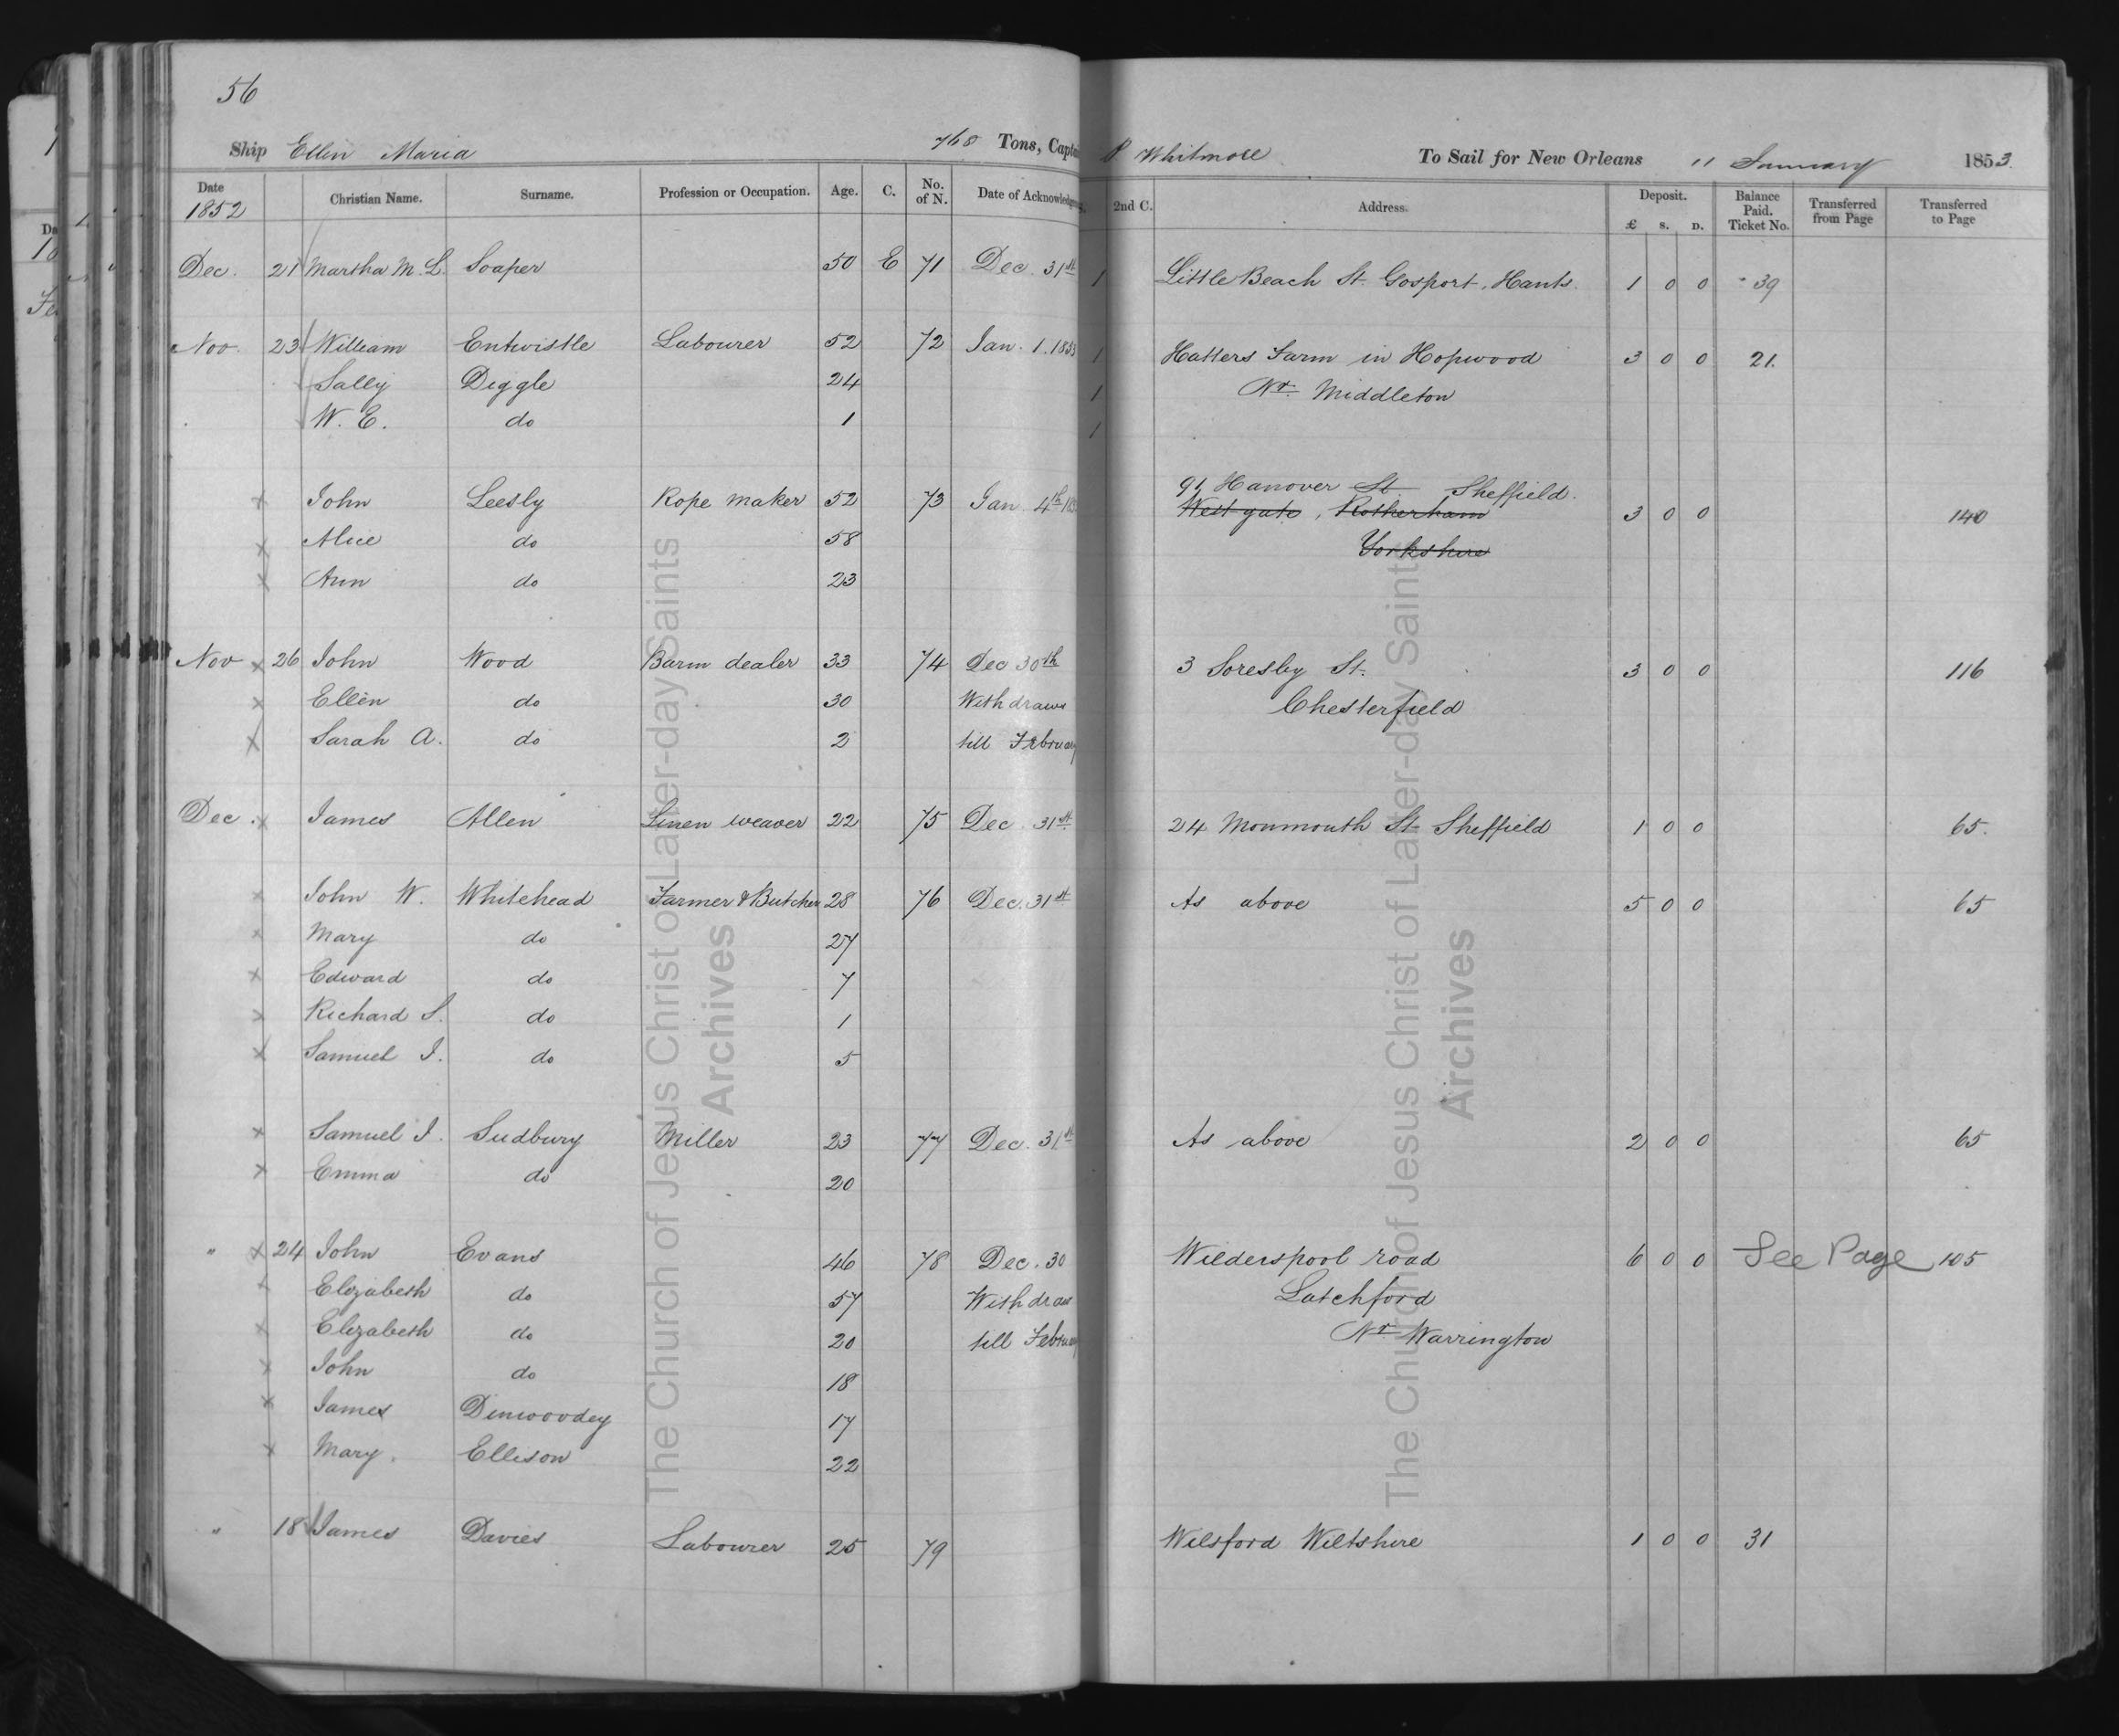 56
Ship Ellen Maria 768 Tons, Captain P Whitmore To Sail for New Orleans 11 January 1853.
Date 1852 Christian Name. Surname. Profession or Occupation. Age. C. No. of N. Date of Acknowledgment. 2nd C. Address. Deposit. £ s. D. Balance Paid. Ticket No. Transferred from Page Transferred to Page
Dec. 21 Martha M. L. Soaper 50 E 71 Dec. 31st 1 Little Beach St. Gosport, Hants. 1 0 0 39
Nov. 23 William Entwistle Labourer 52 72 Jan. 1. 1853 1 Hatters Farm in Hopwood 3 0 0 21.
Sally Diggle 24 1 Nr. Middleton
W. E. do 1 1
91 Hanover St. Sheffield.
x John Leesly Rope maker 52 73 Jan 4th 1853 West gate, Rotherham 3 0 0 140
x Alice do 58 Yorkshire
x Ann do 23
Nov x 26 John Wood Barm dealer 33 74 Dec 30th 3 Soresby St. 3 0 0 116
x Ellen do 30 Withdraws Chesterfield
x Sarah A. do 2 till February
Dec. x James Allen Linen weaver 22 75 Dec. 31st 24 Monmouth St Sheffield 1 0 0 65.
x John W. Whitehead Farmer & Butcher 28 76 Dec. 31st As above 5 0 0 65
x Mary do 27
x Edward do 7
x Richard S. do 1
x Samuel J. do 5
x Samuel J. Sudbury Miller 23 77 Dec. 31st As above 2 0 0 65
x Emma do 20
" x 24 John Evans 46 78 Dec. 30 Wilderspool road 6 0 0 See Page 105
x Elizabeth do 57 Withdraw Latchford
x Elizabeth do 20 till February Nr. Warrington
x John do 18
x James Dinwoodey 17
x Mary. Ellison 22
" 18 James Davies Labourer 25 79 Wilsford Wiltshire 1 0 0 31
The Church of Jesus Christ of Latter-day Saints
Archives
The Church of Jesus Christ of Latter-day Saints
Archives